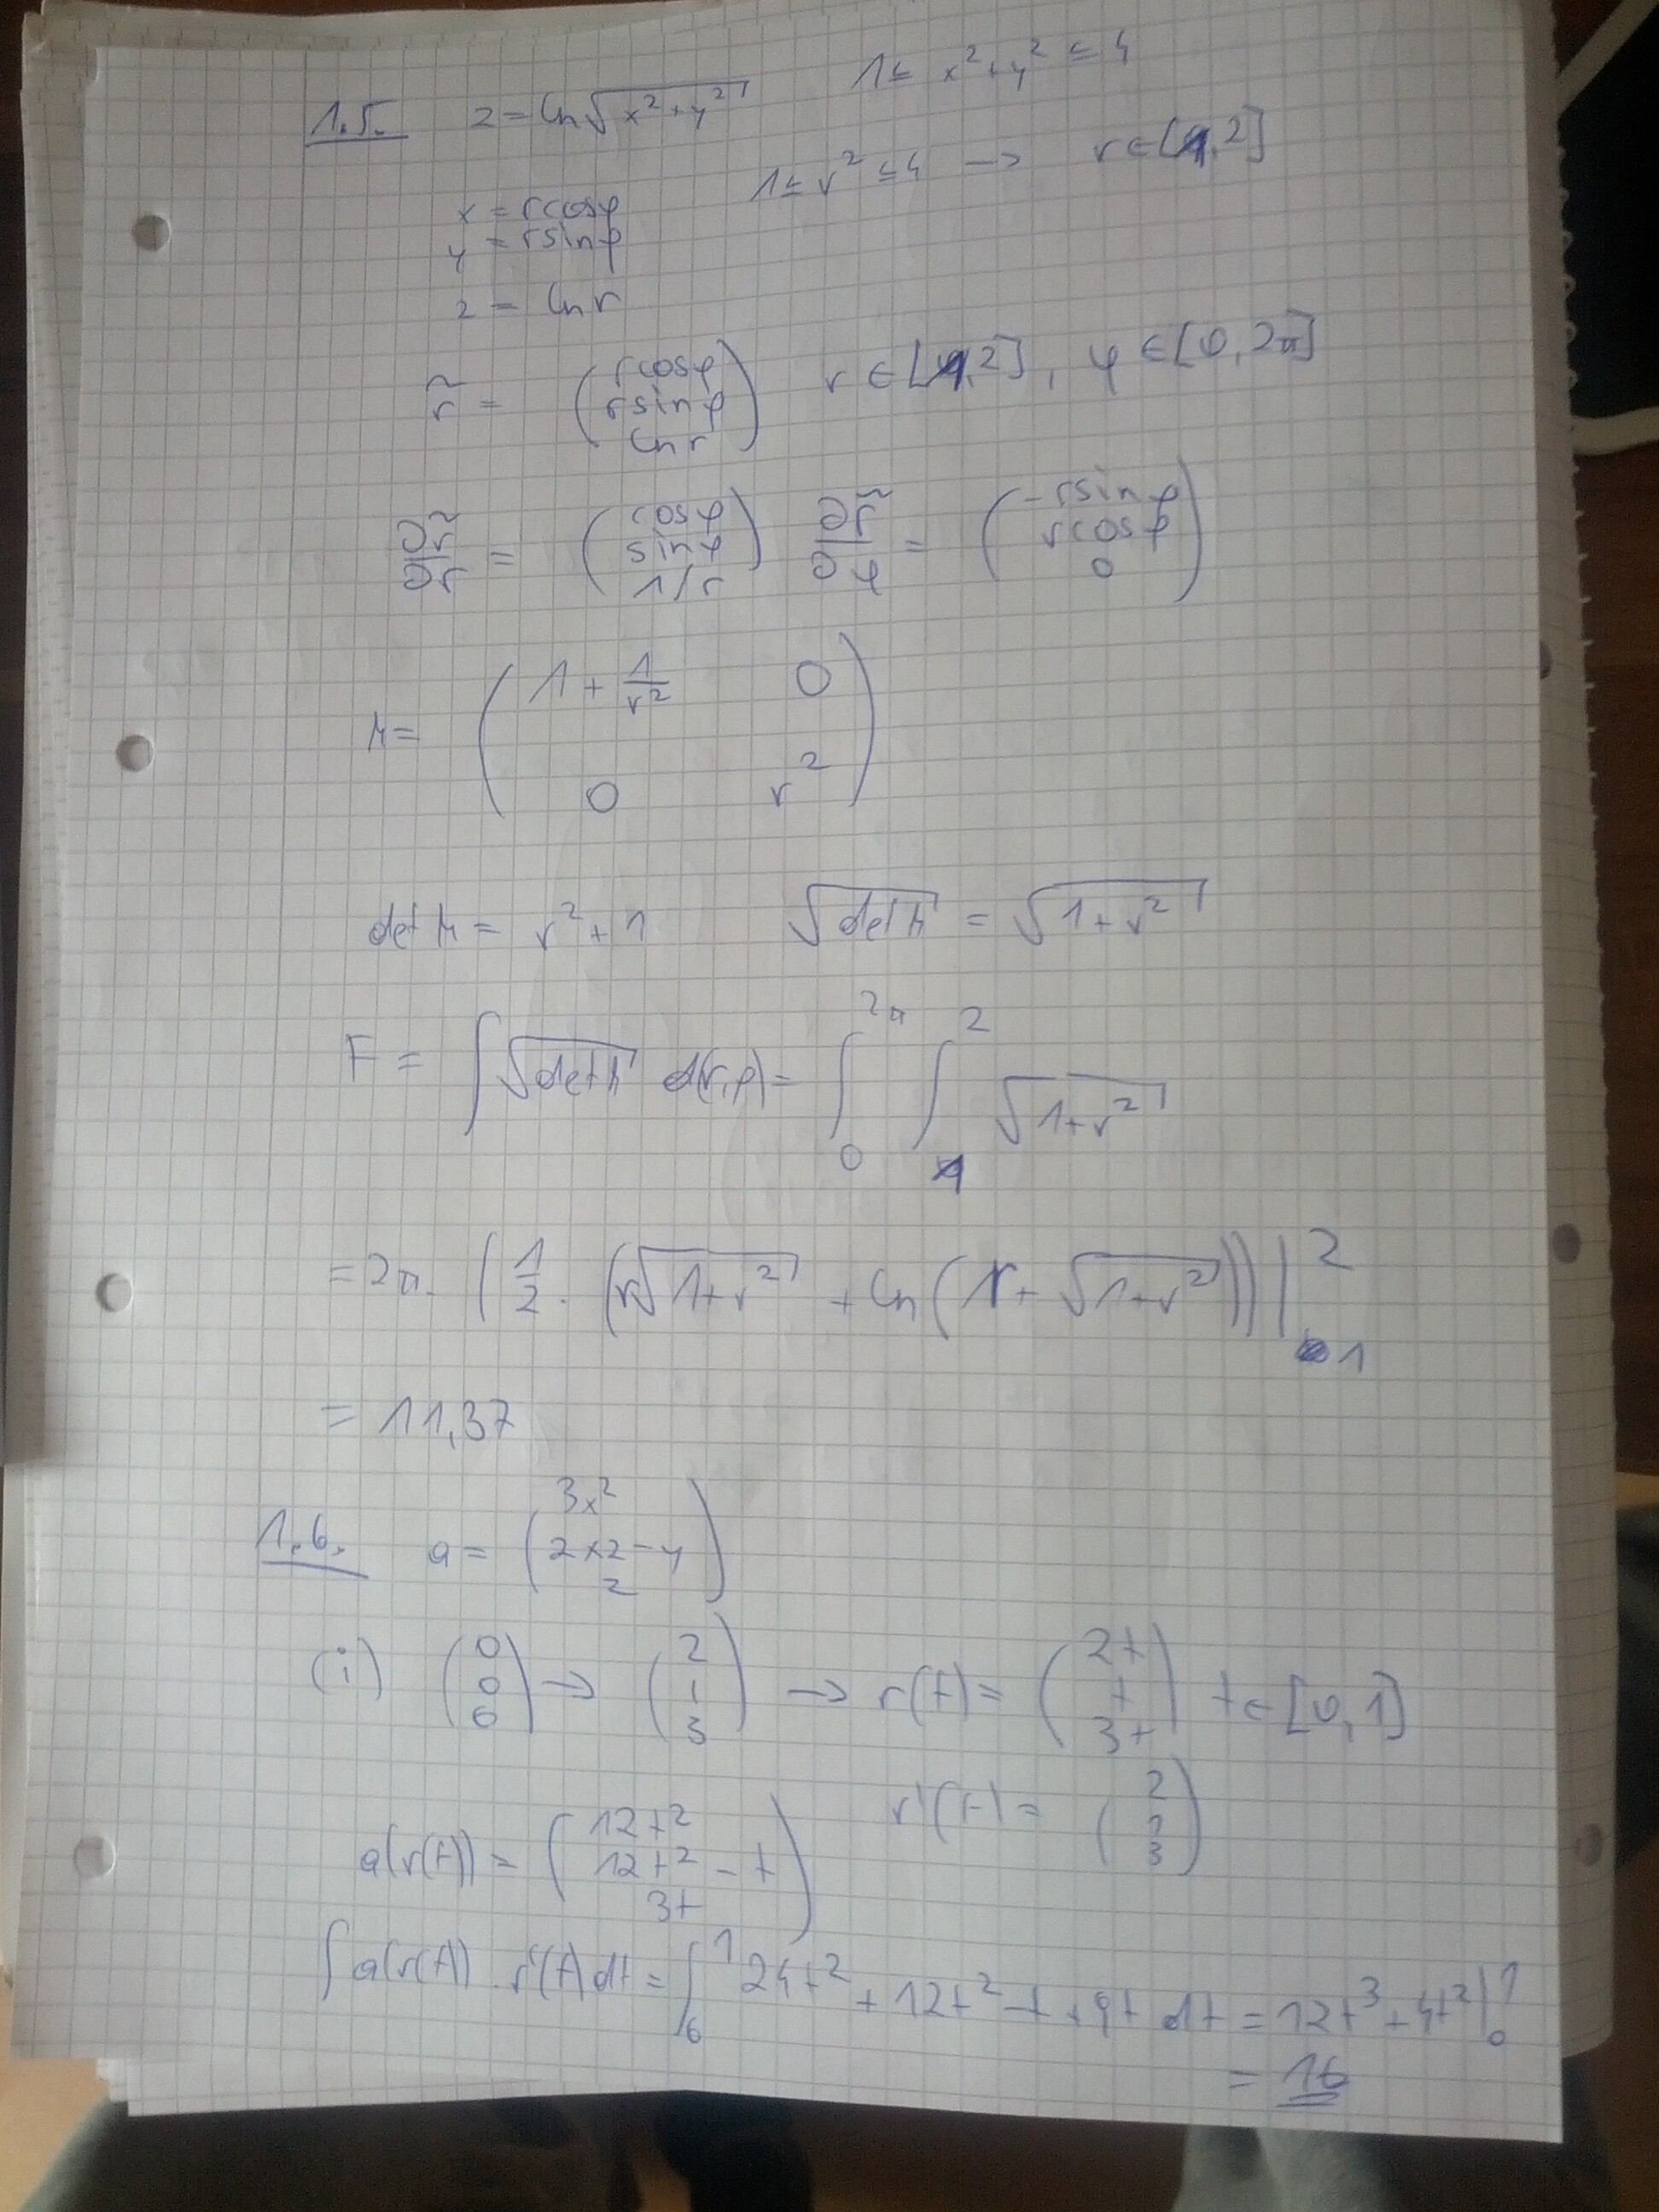 1.5. z = ln √(x²+y²) 1 ≤ x²+y² ≤ 4
1 ≤ r² ≤ 4 → r ∈ [1,2]
x = r cos φ
y = r sin φ
z = ln r
r̃ = (r cos φ, r sin φ, ln r) r ∈ [1,2], φ ∈ [0,2π]
∂r̃/∂r = (cos φ, sin φ, 1/r) ∂r̃/∂φ = (-r sin φ, r cos φ, 0)
M = (1 + 1/r² 0
0 r²)
det M = r² + 1 √(det M) = √(1+r²)
F = ∫ √(det M) d(r,φ) = ∫₀^2π ∫₁^2 √(1+r²)
= 2π · (1/2 · (r√(1+r²) + ln(r + √(1+r²))) |₁²
= 11,37
1.6. a = (3x², 2xz - y, z)
(i) (0, 0, 0) → (2, 1, 3) → r(t) = (2t, t, 3t) t ∈ [0,1]
a(r(t)) = (12t², 12t² - t, 3t) r'(t) = (2, 1, 3)
∫ a(r(t)) · r'(t) dt = ∫₀¹ 24t² + 12t² - t + 9t dt = 12t³ + 4t² |₀¹
= 16